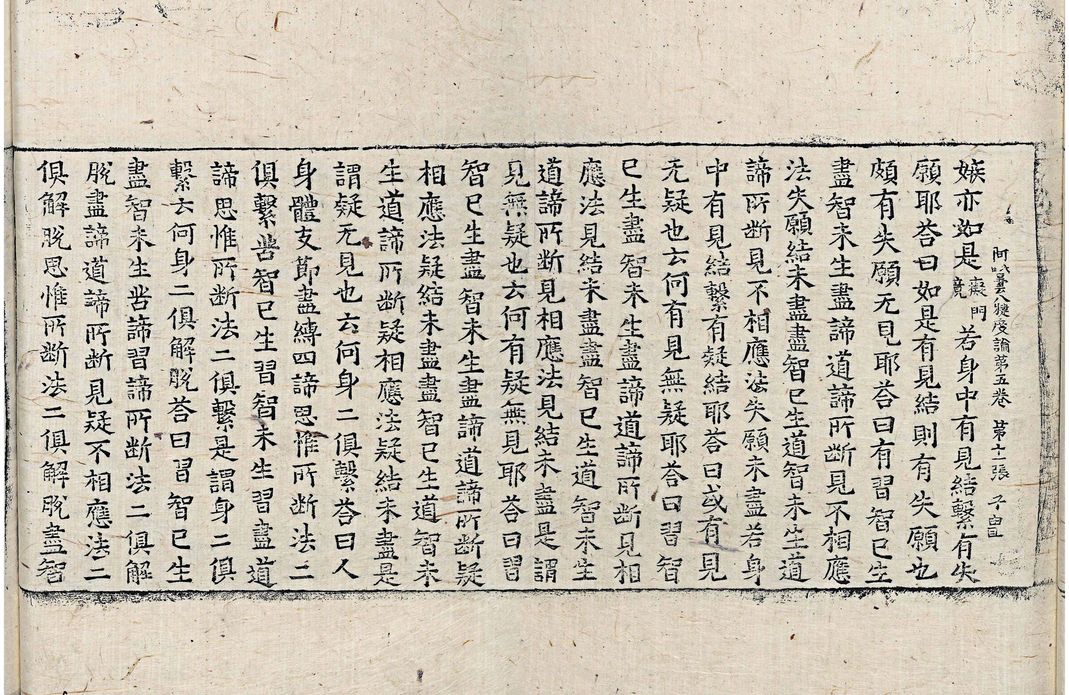 嫉亦如是 癡門竟 若身中有見結繫有失
阿毗曇八犍度論第五卷 第十二張 子
願耶荅曰如是有見結則有失願也
頗有失願无見耶荅曰有習智已生
盡智未生盡諦道諦所断見不相應
法失願結未盡盡智已生道智未生道
諦所断見不相應法失願未盡若身
中有見結繫有疑結耶荅曰或有見
无疑也云何有見無疑耶荅曰習智
已生盡智未生盡諦道諦所断見相
應法見結未盡盡智已生道智未生
道諦所断見相應法見結未盡是謂
見無疑也云何有疑無見耶荅曰習
智已生盡智未生盡諦道諦所断疑
相應法疑結未盡盡智已生道智未
生道諦所断疑相應法疑結未盡是
謂疑无見也云何身二俱繫荅曰人
身體支節盡縛四諦思惟所断法二
俱繫苦智已生習智未生習盡道
諦思惟所断法二俱繫是謂身二俱
繫云何身二俱解脫荅曰習智已生
盡智未生苦諦習諦所断法二俱解
脫盡諦道諦所断見疑不相應法二
俱解脫思惟所断法二俱解脫盡智